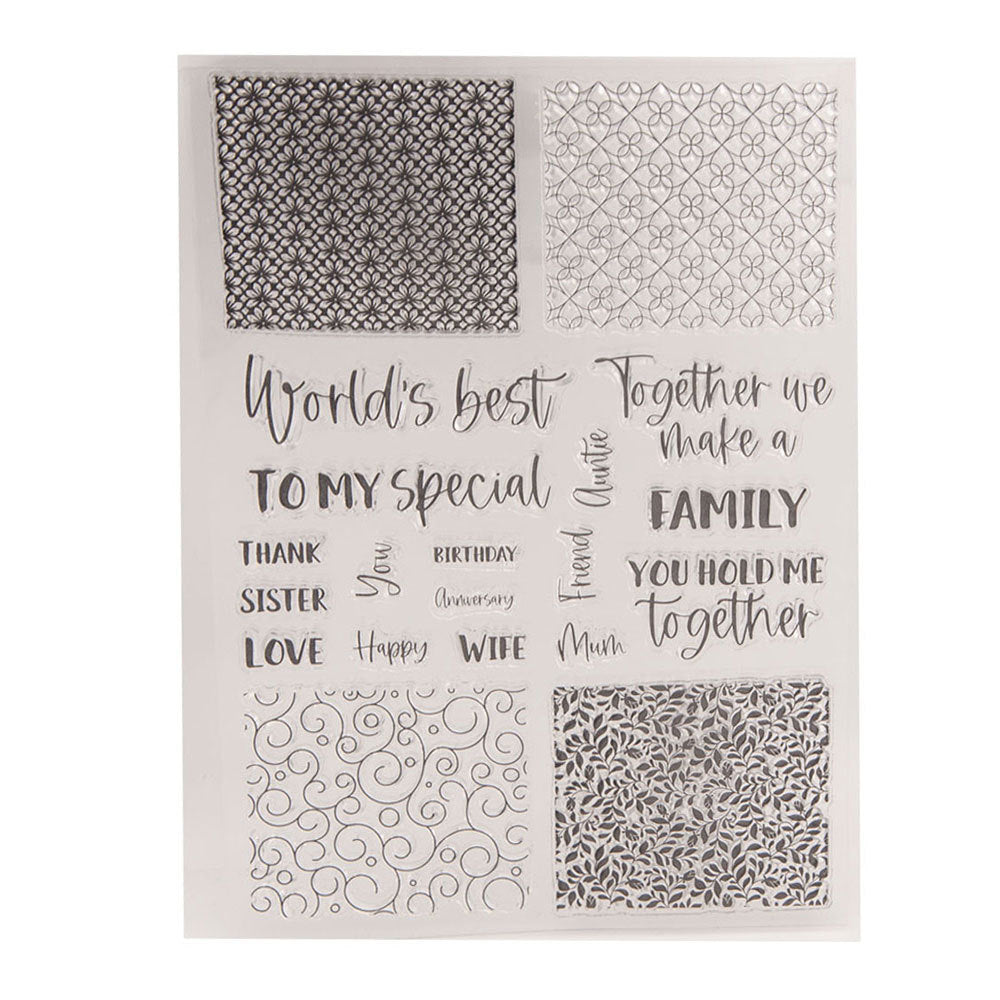 World's best
TO MY special
THANK
You
BIRTHDAY
SISTER
Anniversary
LOVE
Happy
WIFE
Auntie
Friend
Mum
Together we
make a
FAMILY
YOU HOLD ME
together